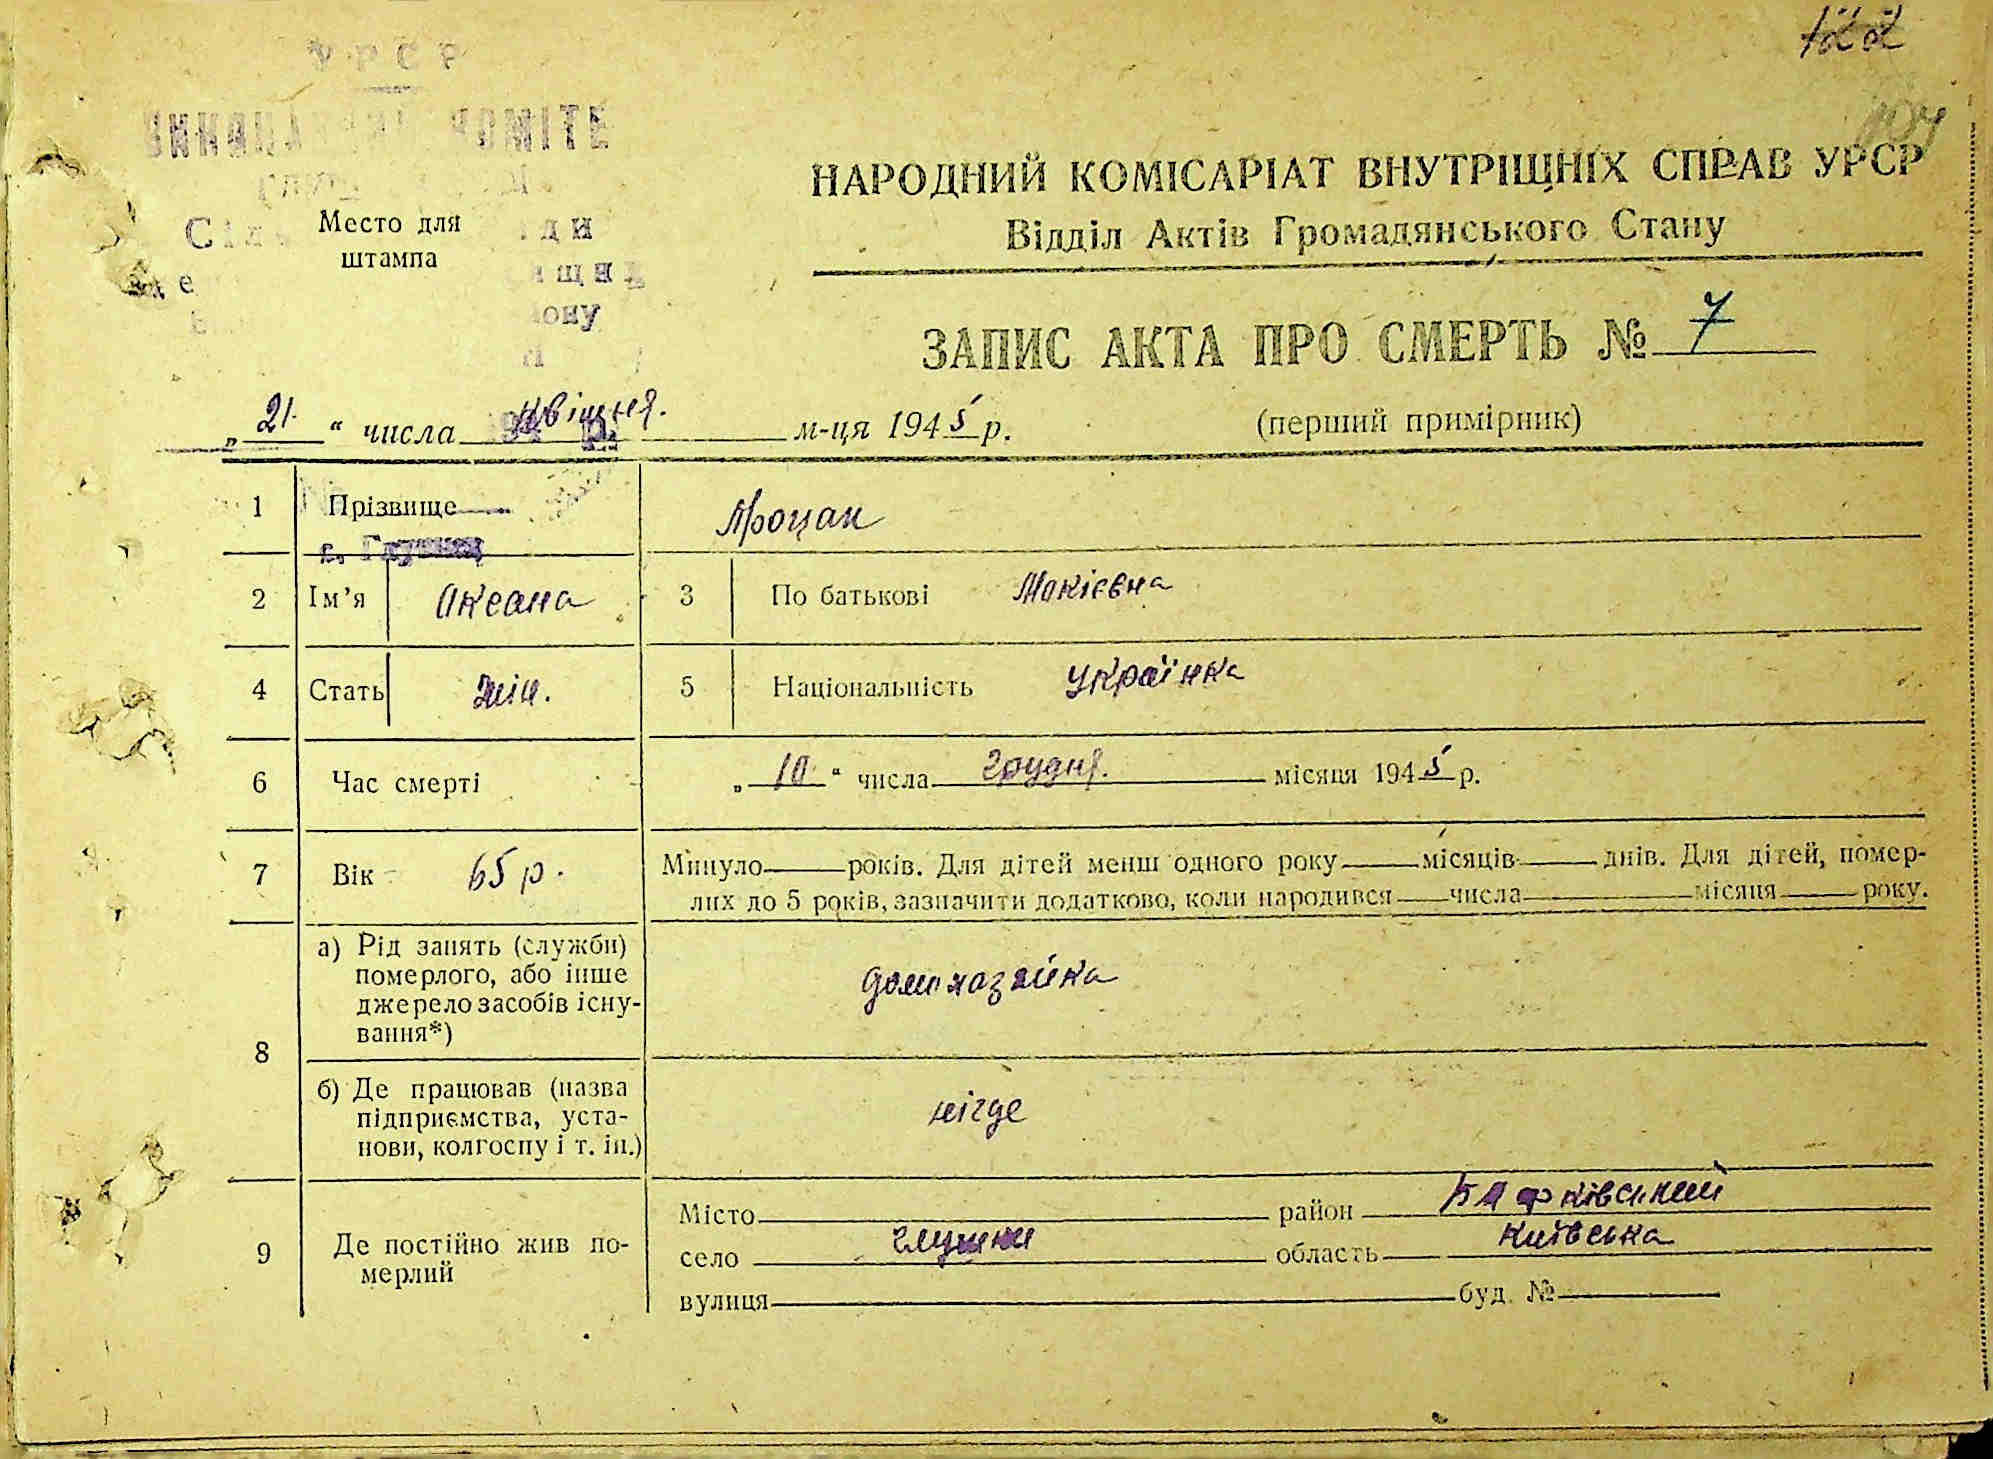 122
104
УРСР
Місто для
штампа
НАРОДНИЙ КОМІСАРІАТ ВНУТРІЩНІХ СПРАВ УРСР
Відділ Актів Громадянського Стану
ЗАПИС АКТА ПРО СМЕРТЬ № 7
„ 21 “ числа квітня. м-ця 1945 р. (перший примірник)
1 Прізвище Процак
2 Ім’я Оксана 3 По батькові Мокієвна
4 Стать жін. 5 Національність Українка
6 Час смерті „ 10 “ числа грудня. місяця 1945 р.
7 Вік 65 р. Минуло років. Для дітей менш одного року місяців днів. Для дітей, помер-
лих до 5 років, зазначити додатково, коли народився числа місяця року.
8 а) Рід занять (служби)
померлого, або інше
джерело засобів існу-
вання*)
домохазяйка
б) Де працював (назва
підприємства, уста-
нови, колгоспу і т. ін.)
нігде
9 Де постійно жив по-
мерлий
Місто район
село Глушки область Київська
вулиця буд. №